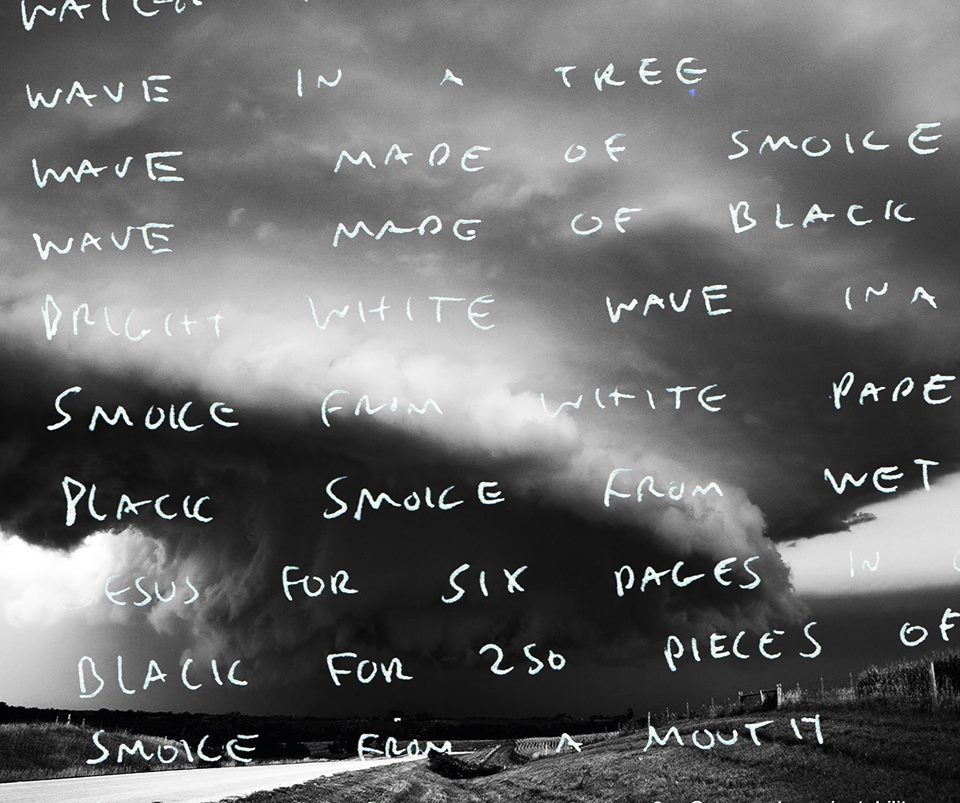 WAVE IN A TREE
WAVE MADE OF SMOKE
WAVE MADE OF BLACK
BRIGHT WHITE WAVE IN A
SMOKE FROM WHITE PAPE
BLACK SMOKE FROM WET
JESUS FOR SIX PAGES IN
BLACK FOR 250 PIECES OF
SMOKE FROM A MOUTH